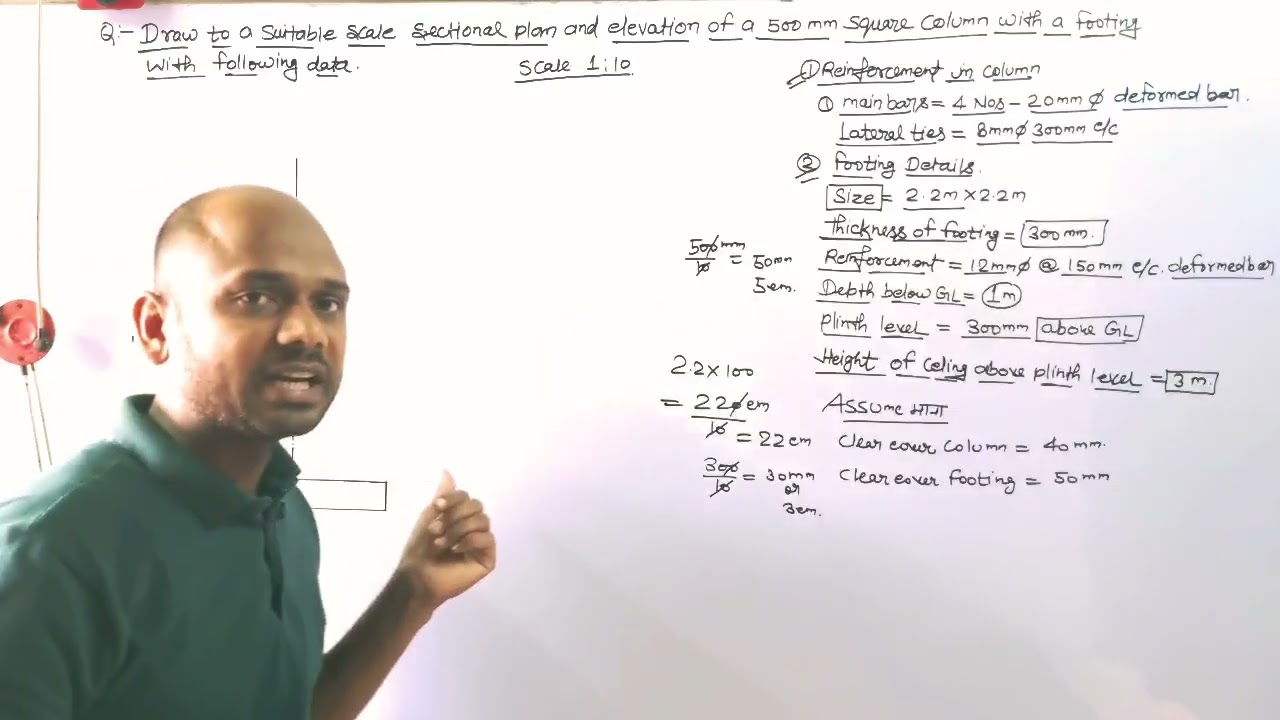 Q:- Draw to a suitable scale sectional plan and elevation of a 500 mm square column with a footing
with following data.
Scale 1:10
① Reinforcement in column
① main bars = 4 Nos - 20mm ϕ deformed bar.
Lateral ties = 8mmϕ 300mm c/c
② footing Details.
Size = 2.2m × 2.2m
thickness of footing = 300mm.
Reinforcement = 12mmϕ @ 150mm c/c. deformed bar
Depth below GL = 1m
plinth level = 300mm above GL
Height of celing above plinth level = 3 m.
Assume माना
Clear cover column = 40 mm.
Clear cover footing = 50 mm
500 mm
10
= 50mm
5cm.
2.2 × 100
= 220cm
10
= 22cm
300
10
= 30mm
or
3cm.